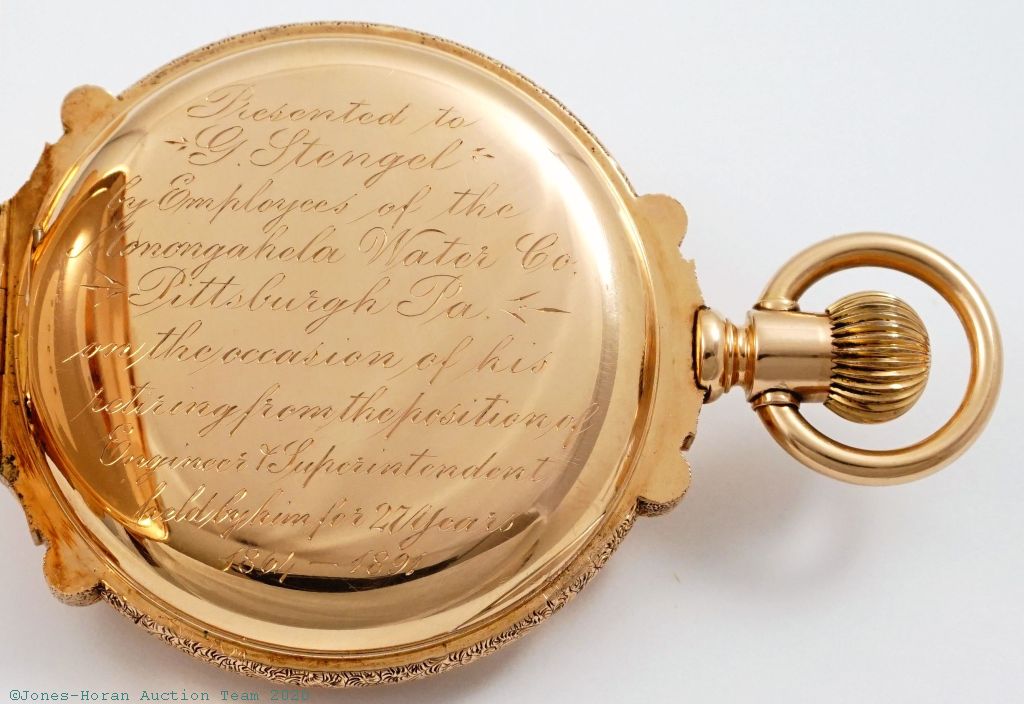 Presented to
G. Stengel
by Employees of the
Monongahela Water Co.
Pittsburgh Pa.
on the occasion of his
retiring from the position of
Engineer & Superintendent
held by him for 27 Years
1864 — 1891
©Jones-Horan Auction Team 2020